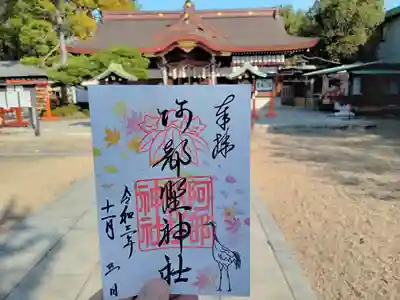 奉拝
阿部野神社
阿部野神社
令和三年
十一月三日